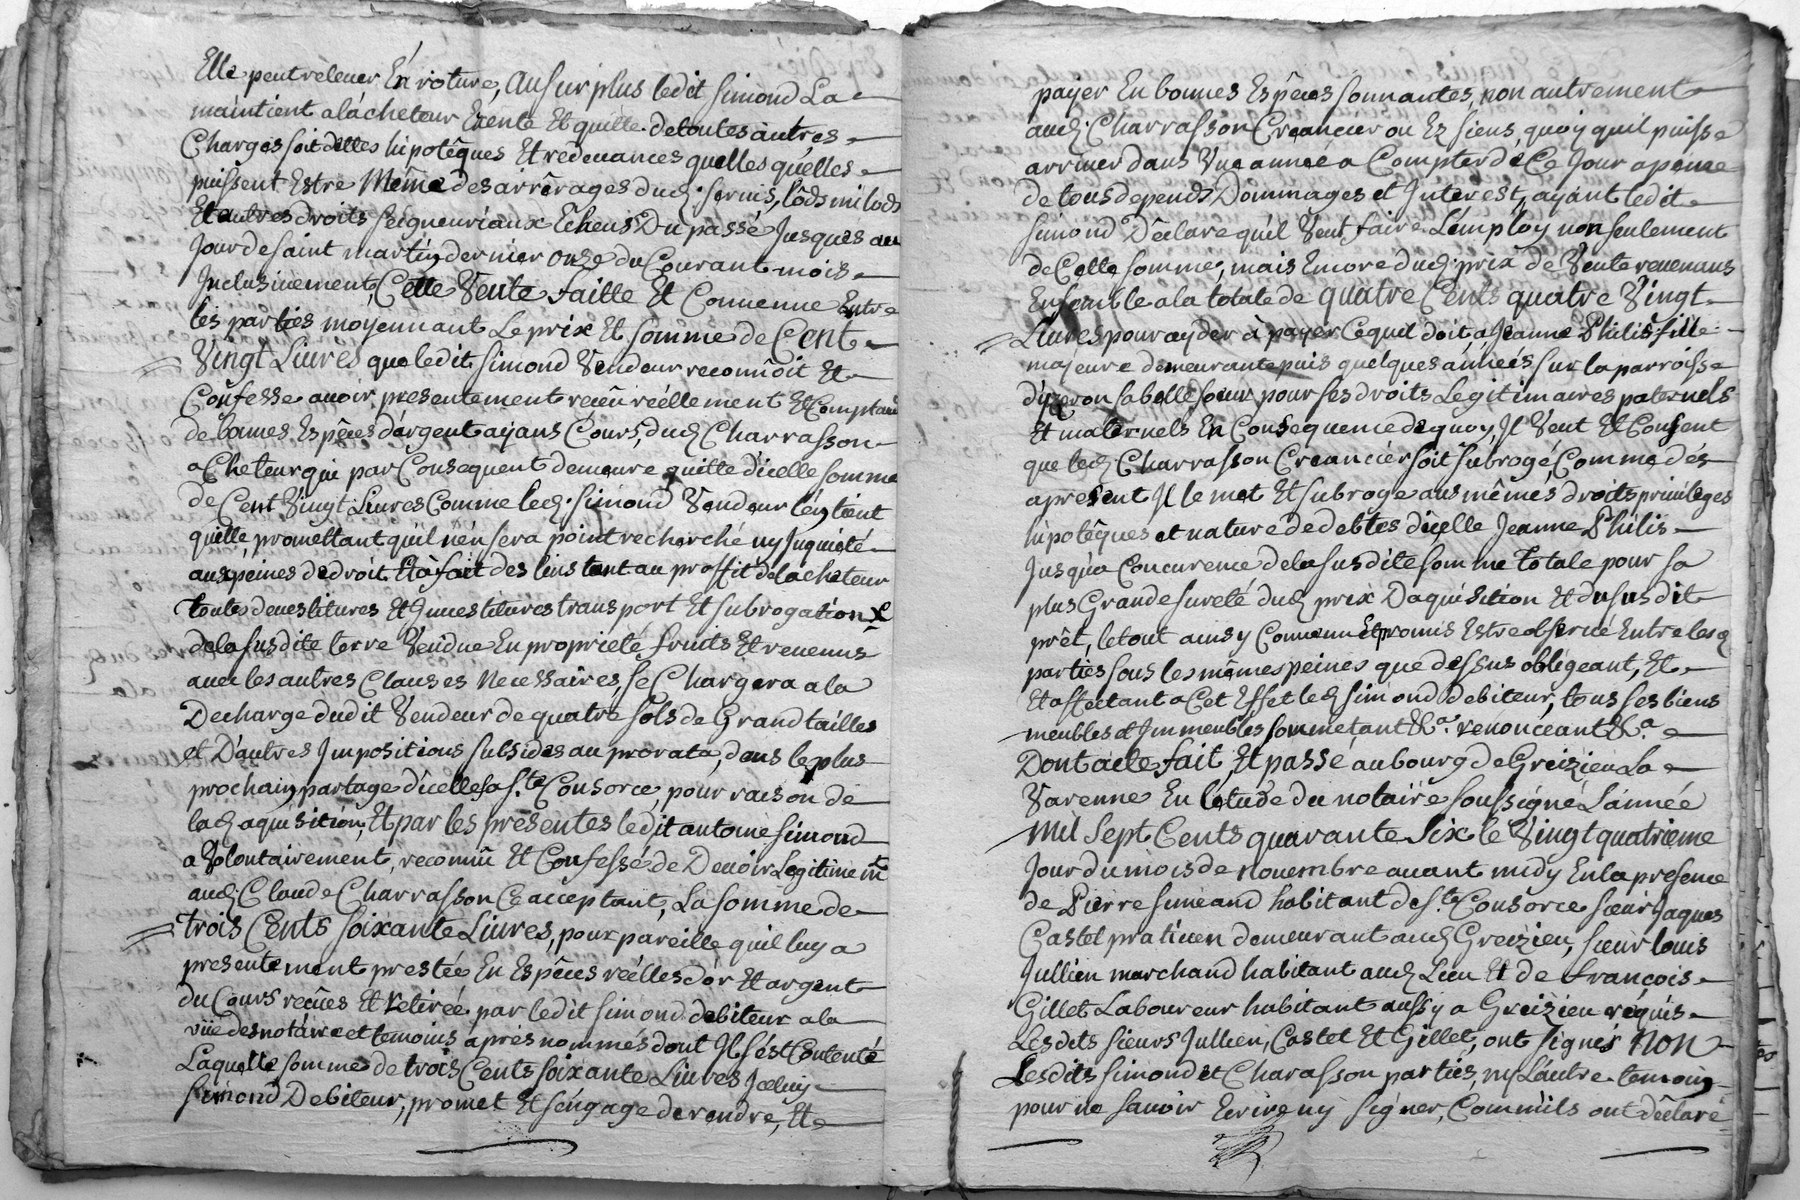 Elle peut relever En roture, Au surplus ledit Simond La
maintient alácheteur Exente Et quitte detoutes autres
Charges soit dettes hipotêques Et redevances quelles quelles
puissent Estre Même des arrêrages dud. servis, lôds milods
Et autres droits seigneuriaux Echeus Du passé Jusques au
Jour de saint martin dernier onze du Courant mois
Inclusivement, Cette Vente faitte Et Convenue Entre
les parties moyennant Le prix Et somme de Cent
Vingt Livres que ledit Simond Vendeur reconnoit Et
Confesse avoir presentement recëu réellement Et Comptant
de bonnes Espêces d'argent ayans Cours, dud Charrasson
a Cheteur qui par Consequent demeure quitte d'icelle somme
de Cent Vingt Livres Comme led. Simond Vendeur l'en tient
quitte, promettant qu'il n'en sera point recherché ny Inquieté
aux peines de droit Et a fait des linstant au proffit delacheteur
toutes devestitures Et Investitures transport Et subrogation
dela susdite terre Vendue En proprieté, fruits Et revenus
avec les autres Clauses Necessaires, se Chargera a la
Decharge dudit Vendeur de quatre sols de Grand tailles
et D'autres Impositions subsides au prorata, dans le plus
prochain partage d'icelles a S.te Consorce, pour raison de
lad aquisition, Et par les presentes ledit antoine Simond
a Volontairement, reconnu Et Confessé de Devoir Legitimem.t
aud Claude Charrasson Ce acceptant, La somme de
trois Cents soixante Livres, pour pareille qu'il luy a
presentement prestée En Espêces réelles d'or Et argent
du Cours recûes Et retirée par ledit Simond debiteur a la
vüe des notaire et temoins après nommés dont Il s'ést Contenté
Laquelle somme de trois Cents soixante Livres Jceluy
Simond Debiteur, promet Et s'engage de rendre, Et
payer En bonnes Espêces sonnantes, non autrement
aud. Charrasson Créancier ou Ez siens, quoy qu'il puisse
arriver dans Une année a Compter de Ce Jour a peine
de tous depends Dommages et Interest, ayant ledit
Simond Déclare qu'il Veut faire L'employ non seulement
de Cette somme, mais Encore dud. prix de Vente revenans
Ensemble a la totale de quatre Cents quatre Vingt
Livres pour ayder à payer Ce quil doit a Jeanne Philis fille
majeure demeurante puis quelques années sur la parroisse
d'izeron sa belle soeur pour ses droits Legitimaires paternels
Et maternels En Consequence de quoy, Il Veut Et Consent
que led. Charrasson Creancier soit subrogé Comme dés
apresent Il le met Et subroge aus mêmes droits privileges
hipotêques et nature de debtes dicelle Jeanne Philis
Jusqu'a Concurence dela susdite somme totale pour sa
plus Grande sureté dud prix D'aquisition Et dususdit
prêt, le tout ainsy Convenu Et promis Estre observé Entre lesd
parties sous les mêmes peines que dessus obligeant, Et
Et affectant a Cet Effet led Simond debiteur, tous ses biens
meubles et Immeubles sommetant &.a renonceant &.a
Dont acte fait, Et passé au bourg de Greizieu La
Varenne En l'etude du notaire soussigné L'année
Mil Sept Cents quarante Six le Vingt quatrieme
Jour du mois de novembre avant midy En la presence
de Pierre simeand habitant de S.te Consorce sieur Jaques
Castel praticien demeurant aud Greizieu, sieur louis
Jullien marchand habitant aud Lieu Et de francois
Gillet Laboureur habitant aussy a Greizieu réquis
Lesdits sieurs Jullien, Castel Et Gillet, ont signés Non
Lesdits Simond et Charasson parties, ny L'autre temoin
pour ne savoir Ecrire ny signer, Comm'ils ont déclaré